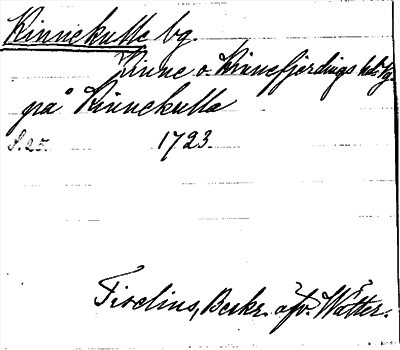 Kinnekulle bg.
Kinne o. Kinnefjerdings hd. Vg.
på Kinnekulla
S. 25. 1723.
Tiselius, Beskr. öfv. Wätter.